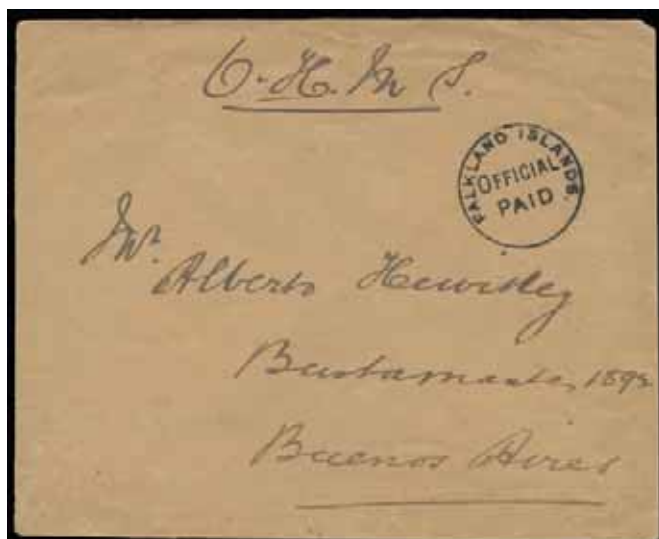 O.H.M S.
FALKLAND ISLANDS.
OFFICIAL
PAID
Mr.
Alberto
Bustamante, 189
Buenos Aires